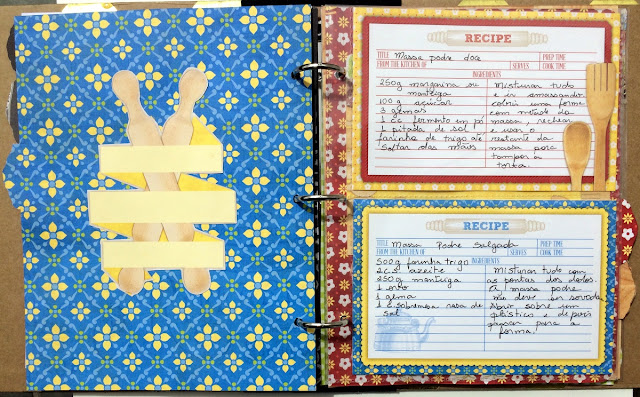 RECIPE
TITLE Massa podre doce PREP TIME
FROM THE KITCHEN OF SERVES COOK TIME
INGREDIENTS
250g margarina ou
manteiga
100g açúcar
3 gemas
1 c.c. fermento em pó
1 pitada de sal
farinha de trigo até
soltar das mãos
Misturar tudo
e ir amassando
cobrir uma forma
com metade da
massa, rechear
e usar o
restante da
massa para
tampar a
torta.
RECIPE
TITLE Massa Podre Salgada PREP TIME
FROM THE KITCHEN OF SERVES COOK TIME
INGREDIENTS
500g farinha trigo
2 c.s. azeite
250g manteiga
1 ovo
1 gema
1 c. sobremesa rasa de
sal
Misturar tudo com
as pontas dos dedos.
A massa podre
não deve ser sovada.
Abrir sobre um
plástico e depois
passar para a
forma.